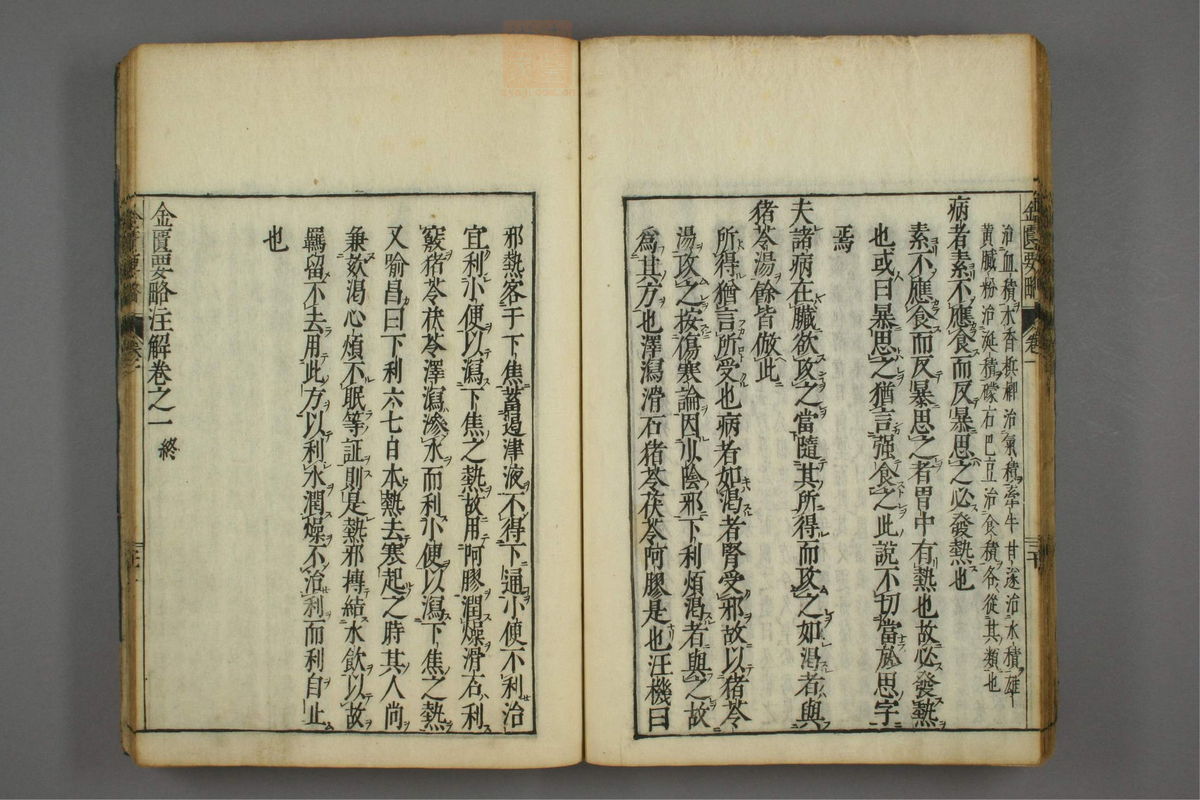 治血積木香檳榔治氣積牽牛甘遂治水積雄
黃膩粉治涎積礞石巴豆治食積各從其類也
病者素不應食而反暴思之必發熱也
素不應食而反暴思之者胃中有熱也故必發熱
也或曰暴思之猶言强食之此說不切當於思字
焉
夫諸病在臟欲攻之當隨其所得而攻之如渴者與
猪苓湯餘皆倣此
所得猶言所受也病者如渴者腎受邪故以猪苓
湯攻之按傷寒論因少陰邪下利煩渴者與之故
為其方也澤瀉滑石猪苓茯苓阿膠是也汪機曰
邪熱客于下焦蓄遏津液不得下通小便不利治
宜利小便以瀉下焦之熱故用阿膠潤燥滑石利
竅猪苓茯苓澤瀉滲水而利小便以瀉下焦之熱
又喻昌曰下利六七日本熱去寒起之時其人尚
兼欬渴心煩不眠等証則是熱邪摶結水飲以故
羈留不去用此方以利水潤燥不治利而利自止
也
金匱要略注解卷之一 終